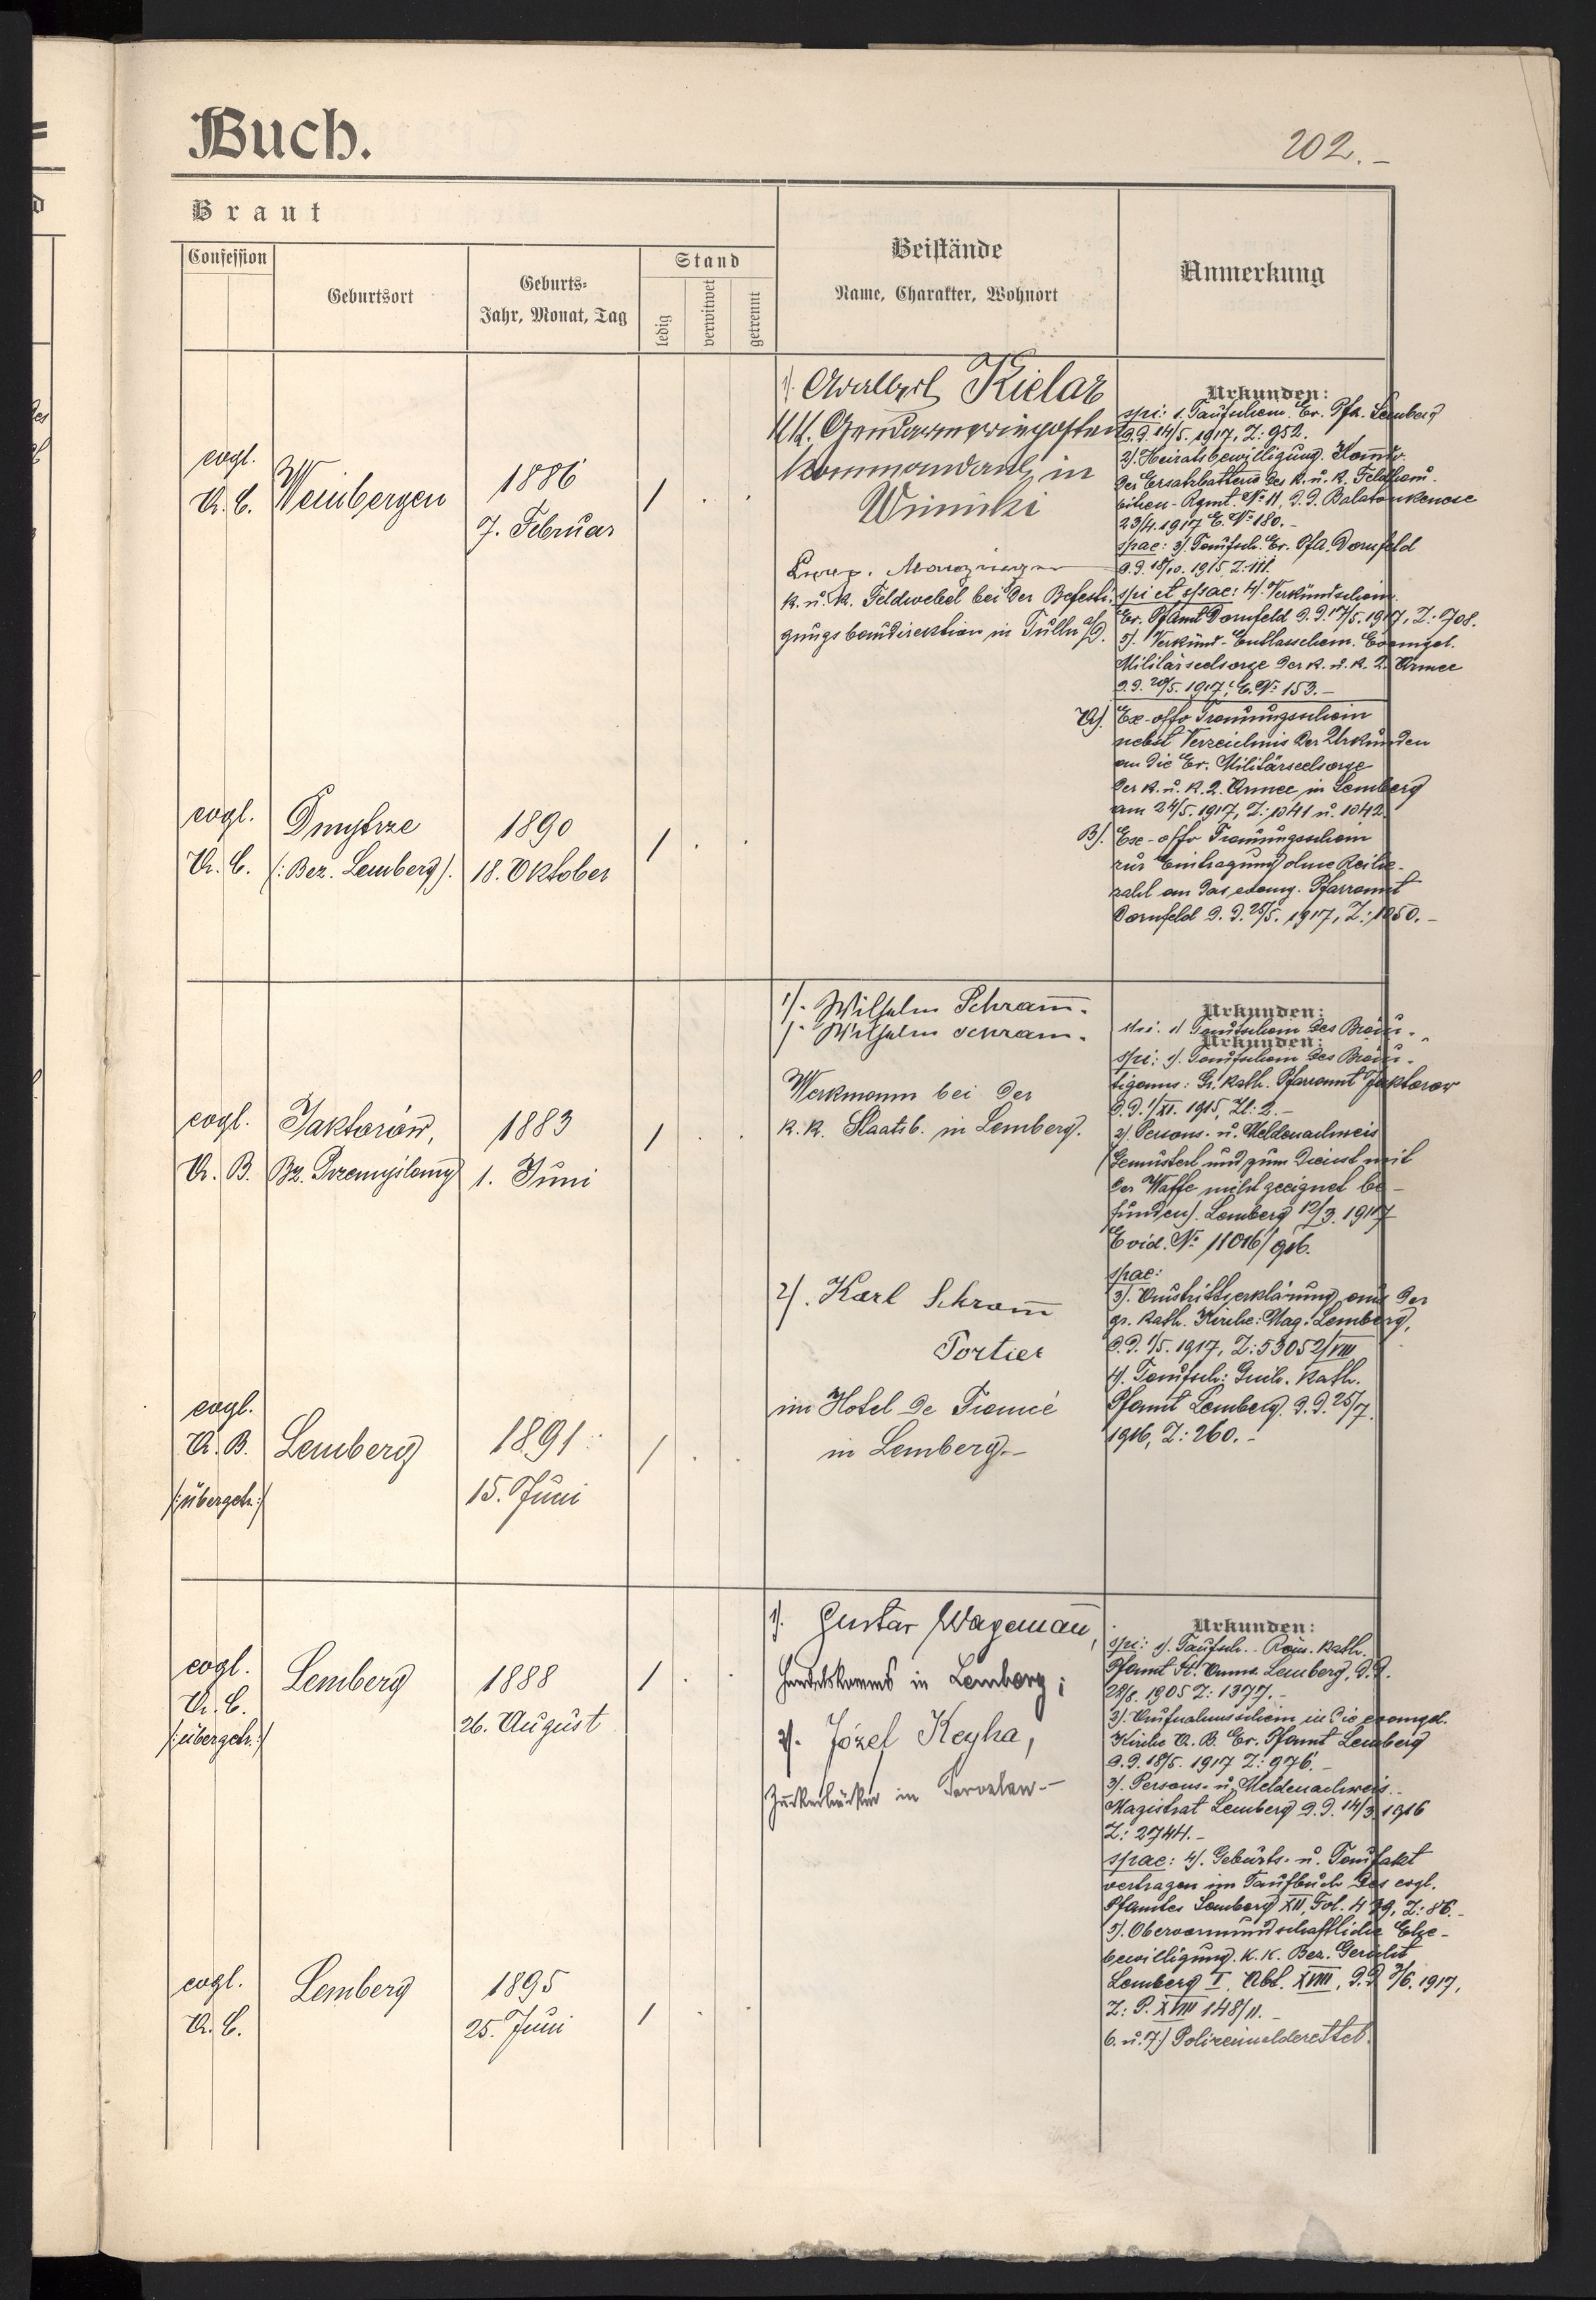 Buch.
202.-
Braut
Confession
Geburtsort
Geburts-
Jahr, Monat, Tag
Stand
ledig
verwitwet
getrennt
Beistände
Name, Charakter, Wohnort
Anmerkung
evgl.
A. C.
Weinbergen
1886
7. Februar
1 . .
1). Adalbert Kielar
k.k. Gendarmerieposten
kommandant in
Winniki
k. u. k. Feldwebel bei der Befesti-
gungsbaudirektion in Tulln a/D.
evgl.
A. C.
Dmytrze
(: Bez. Lemberg).
1890
18. Oktober
1 . .
Urkunden:
spi: 1. Taufschein. Ev. Pfa. Lemberg
d.d. 14/5. 1917, Z: 952.
2). Heiratsbewilligung. Komdo.
der Ersatzbatterie des k. u. k. Feldkano-
nen-Rgmt. No 11, d.d. Balatonkenese
23/4. 1917 E. No 180.-
spae: 3). Taufsch. Ev. Pfa. Dornfeld
d.d. 18/10. 1915, Z: 111.
spi et spae: 4). Verkündschein.
Ev. Pfamt Dornfeld d.d. 17/5. 1917, Z: 708.
5). Verkünd-Entlasschein. Evangel.
Militärseelsorge der k. u. k. 2. Armee
d.d. 20/5. 1917, E. No 153.-
A). Ex-offo Trauungsschein
nebst Verzeichnis der Urkunden
an die Ev. Militärseelsorge
der k. u. k. 2. Armee in Lemberg
am 24/5. 1917, Z: 1041 u. 1042.
B). Ex-offo Trauungsschein
zur Eintragung ohne Reihe-
zahl an das evang. Pfarramt
Dornfeld d.d. 25/5. 1917, Z: 1050.-
evgl.
A. B.
Jaktorów,
Bz. Przemyslany
1883
1. Juni
1 . .
1). Wilhelm Schram̄.
1). Wilhelm Schram.
Werkmann bei der
k. k. Staatsb. in Lemberg.
2). Karl Schram̄
Portier
im Hotel de France
in Lemberg.-
evgl.
A. B.
/:übergetr.:/
Lemberg
1891
15. Juni
1 . .
Urkunden:
spi: 1) Taufschein des Bräu-
Urkunden:
spi: 1). Taufschein des Bräu-
tigams: Gr. kath. Pfarramt Jaktorow
d.d. 1/XI. 1915, Zl: 2.-
2). Persons- u. Meldenachweis
(Gemustert und zum Dienst mit
der Waffe nicht geeignet be-
funden). Lemberg 12/3. 1917
Evid. No 11016/916.
spae:
3). Austrittserklärung aus der
gr. kath. Kirche: Mag. Lemberg,
d.d. 1/5. 1917, Z: 53052/VIII
4). Taufsch: Griech. kath.
Pfamt Lemberg. d.d. 25/7.
1916, Z: 260.-
evgl.
A. C.
/:übergetr.:/
Lemberg
1888
26. August
1 . .
1). Gustav Wagemañ,
Handelskommis in Lemberg;
2). Józef Keyha,
Zuckerbäcker in Jaroslau.-
evgl.
A. C.
Lemberg
1895
25. Juni
1 . .
Urkunden:
spi: 1). Taufsch.- Röm. kath.
Pfamt St. Anna Lemberg, d.d.
22/8. 1905 Z: 1377.-
2). Aufnahmsschein in die evangel.
Kirche A. B. Ev. Pfamt Lemberg
d.d. 18/5. 1917 Z: 976.-
3). Persons- u. Meldenachweis.
Magistrat Lemberg d.d. 14/3. 1916
Z: 2744.-
spae: 4). Geburts- u. Taufakt
vertragen im Taufbuch des evgl.
Pfamtes Lemberg XII, Fol. 439, Z: 86.-
5). Obervormundschaftliche Ehe-
bewilligung. K.K. Bez. Gericht
Lemberg I. Abt. XVIII, d.d. 3/6. 1917,
Z: P. XVIII 148/11.-
6. u. 7.) Polizeimeldezettel.